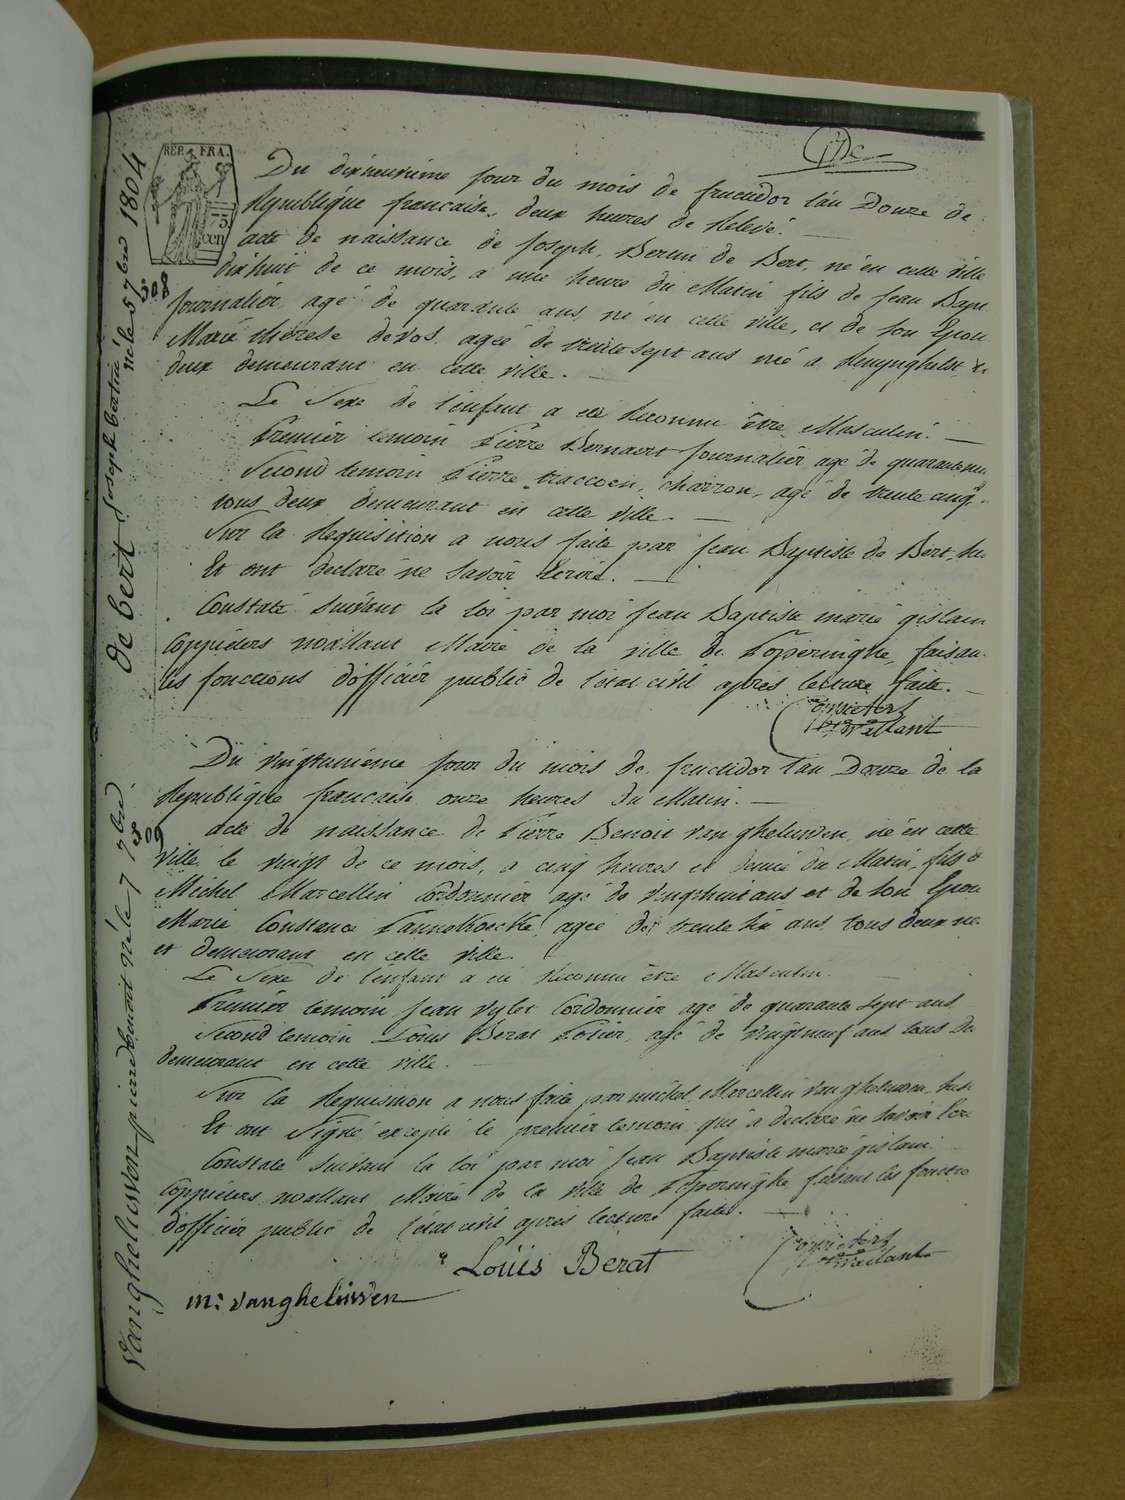 REP. FRA.
75
cen
Du dixneuvième jour du mois de fructidor l'an Douze de
Republique française, deux heures de Relevé.
acte de naissance de Joseph, Bertin de Bert, né en cette ville
dixhuit de ce mois, a une heure du Matin fils de Jean Bapt
Journaliér agé de quarante ans né en cette ville, et de son Epou
Marie therese devos agée de trentesept ans née a Renynghelst
deux demeurant en cette ville.
Le Sexe de l'enfant a eté Reconnu être Masculin.
Premiér temoin Pierre Bernaert Journaliér agé de quarante
Second temoin Pierre traccoen, charron, agé de trente cinq
tous deux demeurant en cette ville.
Sur la Requisition a nous faite par Jean Baptiste de Bert,
Et ont declaré ne Savoir Ecrire.
Constaté Suivant la loi par moi Jean Baptiste marie gislain
Coppieters wallant Maire de la ville de Poperinghe, faisan
les fonctions d'officiér public de l'etat civil apres lecture faite.
Coppieters
Wallant
Du vingtunième jour du mois de fructidor l'an Douze de la
Republique française onze heures du Matin.
acte de naissance de Pierre Benoit vanghelüwen, né en cette
Ville le vingt de ce mois, a cinq heures et demie du Matin, fils d
Michel Marcellin Cordonniér agé de vingthuit ans et de son Epou
Marie Constance agée de trente six ans, tous deux ne
et demeurant en cette ville.
Le Sexe de l'enfant a eté Reconnu être Masculin.
Premiér temoin Jean Cordonniér agé de quarante sept ans
Second temoin Loüis Berat Potiér, agé de vingtneuf ans tous de
demeurant en cette ville.
Sur la Requisition a nous faite par michel Marcellin Vanghelüwen,
Et ont Signé excepté le premiér temoin qui a declaré ne savoir Ecr
Constaté Suivant la loi par moi Jean Baptiste marie gislain
Coppieters wallant Maire de la ville de Poperinghe faisant les fonctio
d'officiér public de l'etat civil apres lecture faite.
Loüis Berat
m: vanghelüwen
Coppieters
Wallant
de bert joseph bertin né le 5 7bre 1804
508
vanghelüwen pierre benoit né le 7 7bre
509